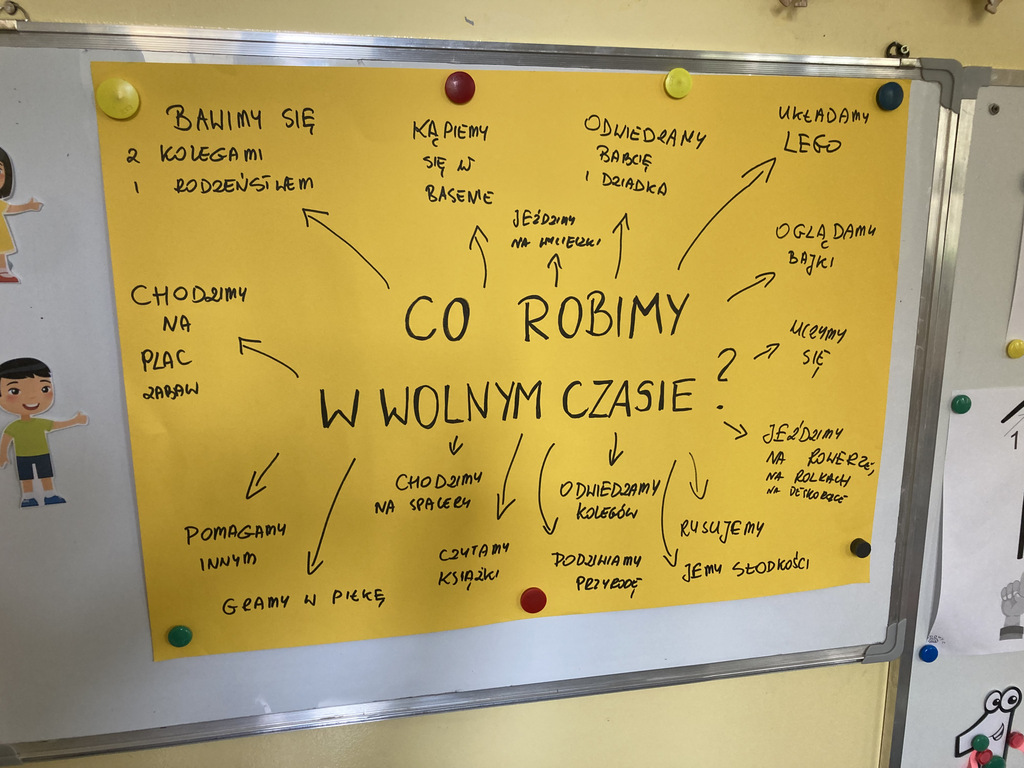 BAWIMY SIĘ
Z KOLEGAMI
I RODZEŃSTWEM
KĄPIEMY
SIĘ W
BASENIE
JEŹDZIMY
NA WYCIECZKI
ODWIEDZAMY
BABCIĘ
I DZIADKA
UKŁADAMY
LEGO
OGLĄDAMY
BAJKI
CHODZIMY
NA
PLAC
ZABAW
CO ROBIMY
W WOLNYM CZASIE?
UCZYMY
SIĘ
JEŹDZIMY
NA ROWERZE,
NA ROLKACH
NA DESKOROLCE
POMAGAMY
INNYM
GRAMY W PIŁKĘ
CHODZIMY
NA SPACERY
CZYTAMY
KSIĄŻKI
ODWIEDZAMY
KOLEGÓW
PODZIWIAMY
PRZYRODĘ
RYSUJEMY
JEMY SŁODKOŚCI
1